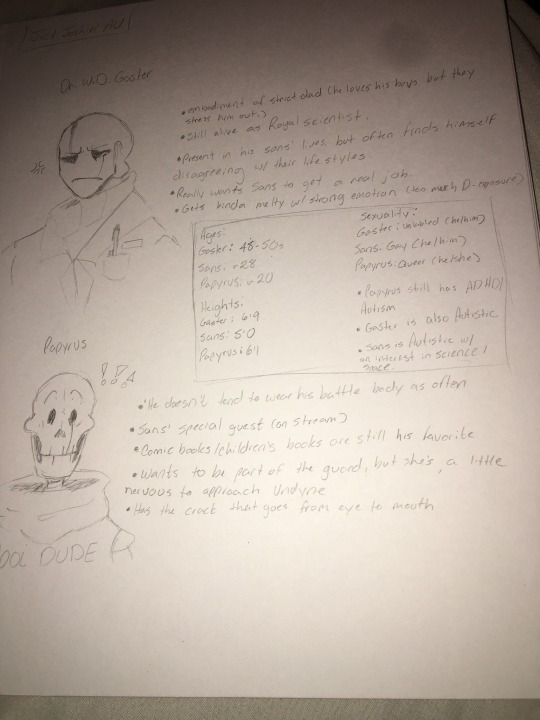 Dr. W.D. Gaster
• embodiment of strict dad (he loves his boys but they
stress him out.)
• Still alive as Royal scientist.
• Present in his sons' lives but often finds himself
disagreeing w/ their lifestyles
• Really wants Sans to get a real job.
• Gets kinda melty w/ strong emotion (too much D-exposure)
Ages:
Gaster: 48-50s
Sans: ~28
Papyrus: ~20
Heights:
Gaster: 6'9
Sans: 5'0
Papyrus: 6'1
Sexuality:
Gaster: unlabled (he/him)
Sans: Gay (he/him)
Papyrus: Queer (he/she)
• Papyrus still has ADHD/
Autism
• Gaster is also Autistic
• Sans is Autistic w/
an interest in science/
space.
Papyrus
!!
• He doesn't tend to wear his battle body as often
• Sans' special guest (on stream)
• Comic books/children's books are still his favorite
• Wants to be part of the guard, but she's a little
nervous to approach Undyne
• Has the crack that goes from eye to mouth
OOL DUDE